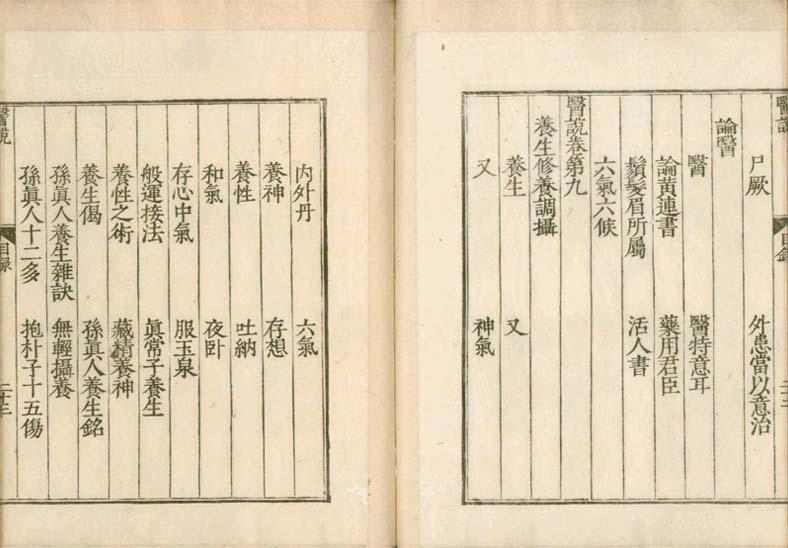 醫說
目錄
二十二
尸厥 外患當以意治
論醫
醫 醫特意耳
論黃連書 藥用君臣
鬚髮眉所屬 活人書
六氣六候
醫說卷第九
養生修養調攝
養生 又
又 神氣
內外丹 六氣
養神 存想
養性 吐納
和氣 夜卧
存心中氣 服玉泉
般運接法 眞常子養生
養性之術 藏精養神
養生偈 孫眞人養生銘
孫眞人養生雜訣 無輕攝養
孫眞人十二多 抱朴子十五傷
醫說
目錄